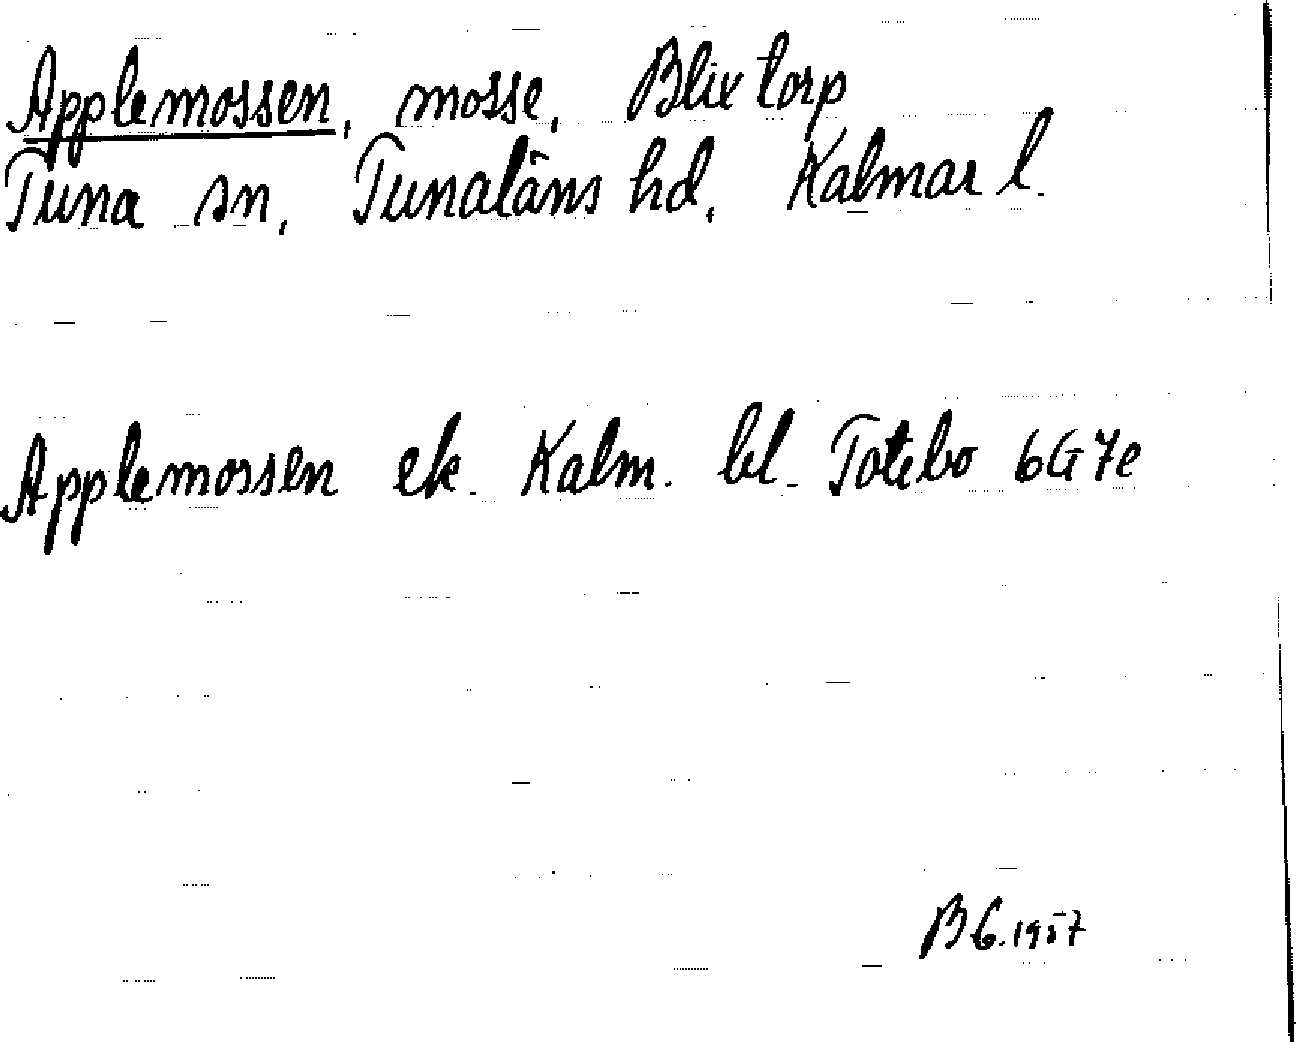 Applemossen, mosse, Blixtorp
Tuna sn, Tunaläns hd, Kalmar l.
Applemossen ek. Kalm. bl. Totebo 6G7e
BG. 1957